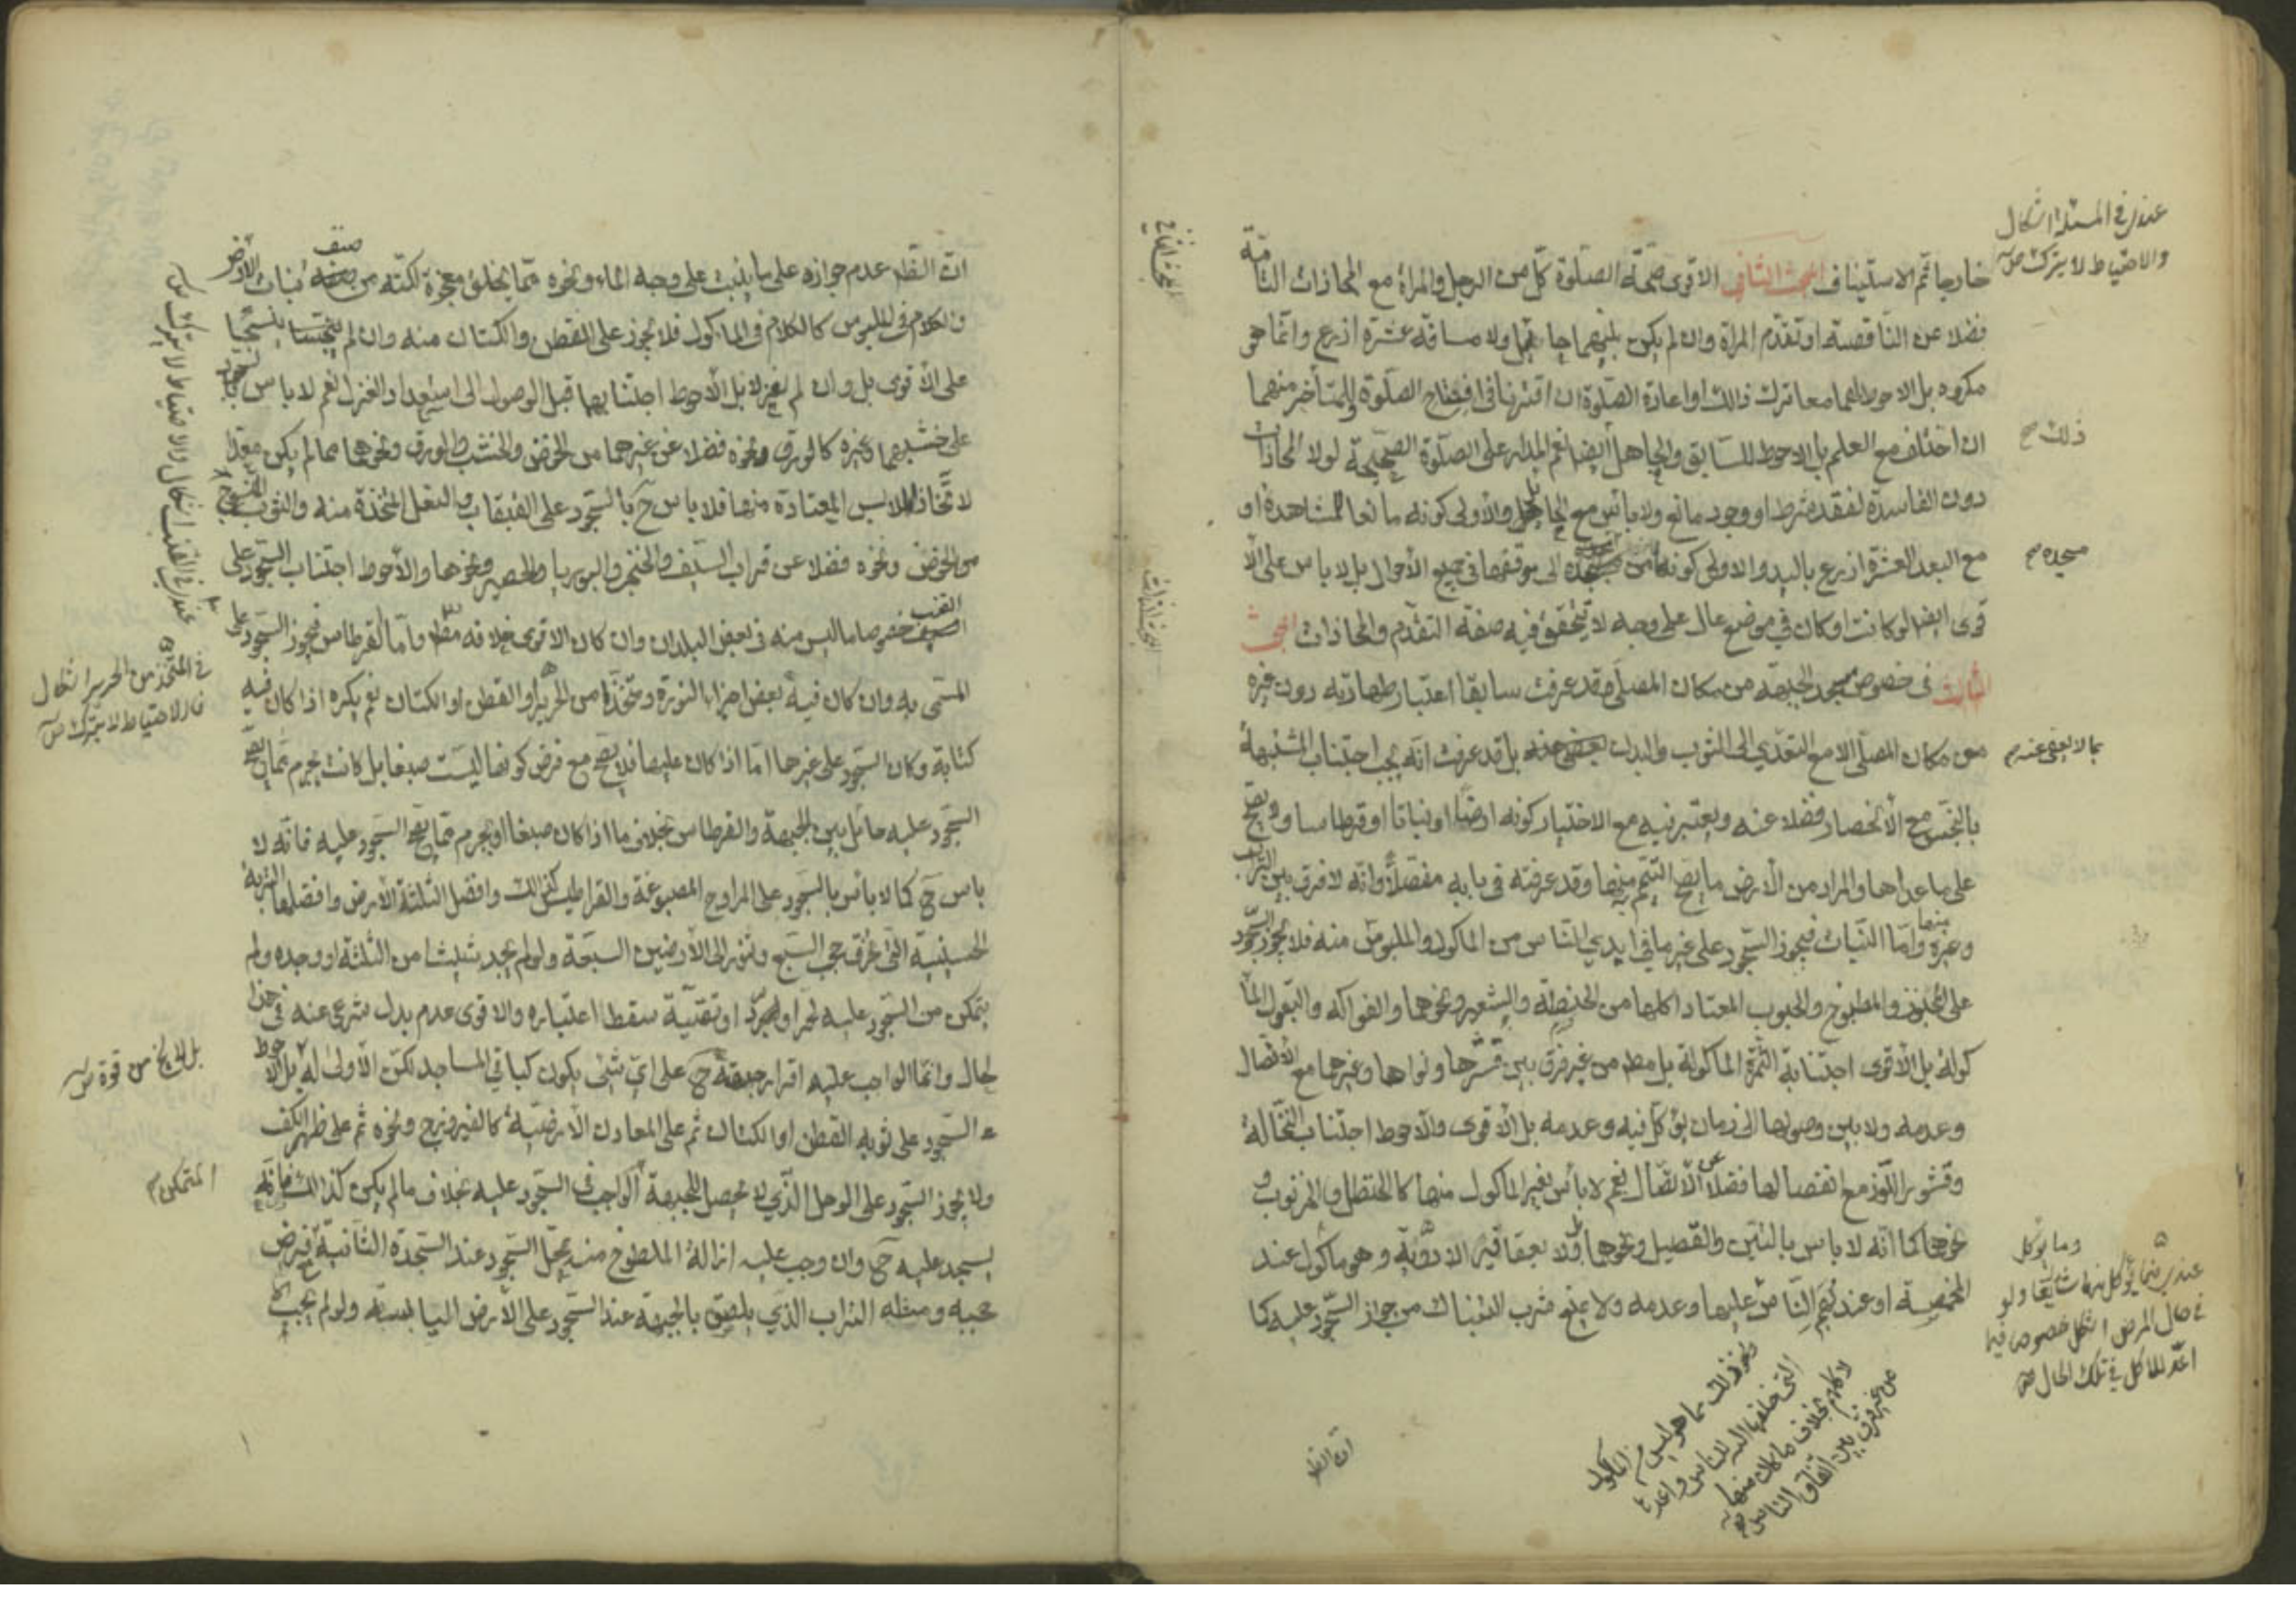 خارجا ثم الاستيناف المبحث الثاني الاقوى صحة الصلوة كل من الرجل والمرأة مع المحاذات التامة
فضلا عن الناقصة او تقدم المرأة وان لم يكن بينهما حايل ولا مسافة عشرة اذرع وانما هو
مكروه بل الاحوط لهما معا ترك ذلك او اعادة الصلوة ان اقترنا في افتتاح الصلوة وللمتأخر منهما
ان اختلف مع العلم بل الاحوط للسابق والجاهل أيضا نعم المدار على الصلوة الصحيحة لولا المحاذات
دون الفاسدة لفقد شرط او وجود مانع ولا بأس مع الحائل والأولى كونه مانعا للمشاهدة او
مع البعد العشرة اذرع باليد والاولى كونها من مسجده الى موقفها في جميع الأحوال بل لا باس على الا
قوى ايضا لو كانت او كان في موضع عال على وجه لا يتحقق فيه صفة التقدم والمحاذات المبحث
الثالث في خصوص مسجد الجبهة من مكان المصلي وقد عرفت سابقا اعتبار طهارته دون غيره
من مكان المصلي الا مع التعدي الى الثوب والبدن بل قد عرفت انه يجب اجتناب المشتبهة
بالنجس مع الأنحصار فضلا عنه ويعتبر فيه مع الاختيار كونه ارضا او نباتا او قرطاسا ولا يصح
على ما عداها والمراد من الأرض ما يصح التيمم بها وقد عرفته في بابه مفصلا وانه لا فرق بين التراب
وغيره منها واما النبات فيجوز السجود على غير ما في ايدي الناس من الماكول والملبوس منه فلا يجوز السجود
على المخبوز والمطبوخ والحبوب المعتاد اكلها من الحنطة والشعير ونحوهما والفواكه والبقول الما
كولة بل الأقوى اجتنابه الثمرة الماكولة بل مطه من غير فرق بين قشرها ونواها وغيرها مع الأتصال
وعدمه ولا بين وصولها الى زمان يؤكل فيه وعدمه بل الأقوى والاحوط اجتناب النخالة
وقشور اللوز مع انفصالها فضلا عن الاتصال نعم لا بأس بغير الماكول منها كالحنظل والخرنوب و
نحوهما كما انه لا باس بالتين والقصيل ونحوهما ولا بعقاقير الادوية وهو ماكول عند
المخمصة او عند بعض الناس عليها وعدمه ولا يمنع شرب التنباك من جواز السجود عليه كما
عندي في المسئلة اشكال
والاحتياط لا يترك ص
ذلك صح
مسجده م
بما لا يعفى عنه م
وما يؤكل
في حال المرض
للاكل في تلك الحال ص
ونحو ذلك مما هو ليس الماكول
التي خلقها الله للناس
لا كلام بخلاف ما كان منها
من غير فرق بين اتفاق الناس
ان الظه
ان الظه عدم جوازه على ما ينبت على وجه الماء ونحوه مما يخلق معجزة لكنه من صنف نبات الأرض
والكلام في الملبوس كالكلام في الماكول فلا يجوز على القطن والكتان منه وان لم
على الأقوى بل وان لم يغزلا بل الأحوط اجتنابهما قبل الوصول الى استعداد الغزل نعم لا باس بالسجود
على خشبهما وغيره كالورق ونحوه فضلا عن غيرهما من الخوص والخشب والورق ونحوهما مما لم يكن معتادا
لاتخاذ الملابس المعتادة منها فلا باس ح بالسجود على القبقاب والنعل المتخذة منه والثوب المنسوج
من الخوص ونحوه فضلا عن قراب السيف والخنجر والبوريا والحصير ونحوها والأحوط اجتناب السجود على
القنب خصوصا ما لبس منه في بعض البلدان وان كان الاقوى خلافه مطه واما القرطاس فيجوز السجود على
المسمى به وان كان فيه بعض اجزاء النورة ومتخذا من الحرير او القطن او الكتان نعم يكره اذا كان فيه
كتابة وكان السجود على غيرها اما اذا كان عليها فلا يصح مع فرض كونها ليست صبغا بل كانت بجرم مما لا يصح
السجود عليه حائل بين الجبهة والقرطاس بخلاف ما اذا كان صبغا او بجرم مما يصح السجود عليه فانه لا
باس ح كما لا بأس بالسجود على المراوح المصبوغة والقراطيس كذلك وافضل الثلثة الأرض وافضلها التربة
الحسينية التي تخرق حجب السبع وتنور الى الأرضين السبعة ولو لم يجد شيئا من الثلثة او وجده ولم
يتمكن من السجود عليه لحر او لبرد او تقية سقط اعتباره والاقوى عدم بدل شرعي عنه في هذا
الحال وانما الواجب عليه اقرار جبهته ح على اي شيء يكون كباقي المساجد لكن الأولى له بل الأحوط
السجود على ثوبه القطن او الكتان ثم على المعادن الأرضية كالفيروزج ونحوه ثم على ظهر الكف
ولا يجوز السجود على الوحل الذي لا يحصل للجبهة الواجب في السجود عليه بخلاف ما لم يكن كذلك فانه
يسجد عليه ح وان وجب عليه ازالة الملطوخ منه محل السجود عند السجدة الثانية
محجبه ومثله التراب الذي يلصق بالجبهة عند السجود على الأرض اليابسة ولو لم يجب
عندي في القنب اشكال والاحتياط لا يترك ص
في المتخذ من الحرير اشكال
فالاحتياط لا يترك ص
بل لا يخ من قوة ص
المتمكن م